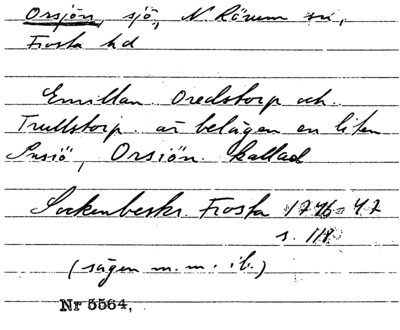 Orsjön, sjö, N. Rörum sn,
Frosta hd
Emillan Oredstorp och
Trullstorp är belägen en liten
Insiö, Orsiön kallad
Sockenbeskr. Frosta 1746-47
s. 118
(sägen m. m. ib.)
Nr 5564,